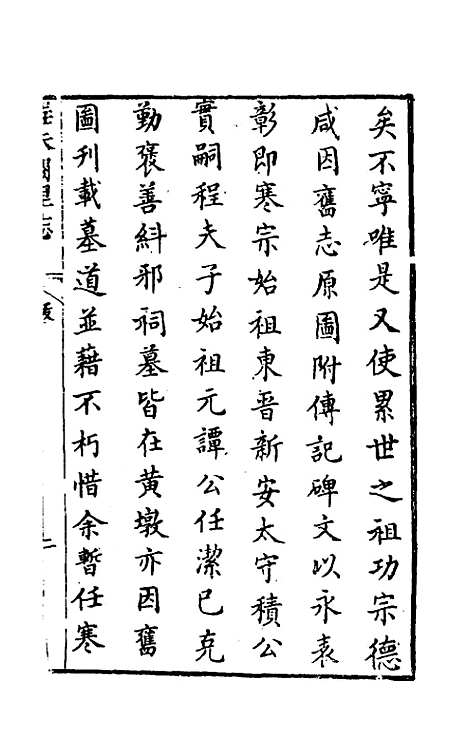 矣不寧唯是又使累世之祖功宗德
咸因舊志原圖附傳記碑文以永表
彰即寒宗始祖東晉新安太守積公
實嗣程夫子始祖元譚公任潔已克
勤褒善糾邪祠墓皆在黃墩亦因舊
圖刊載墓道並藉不朽惜余暫任寒